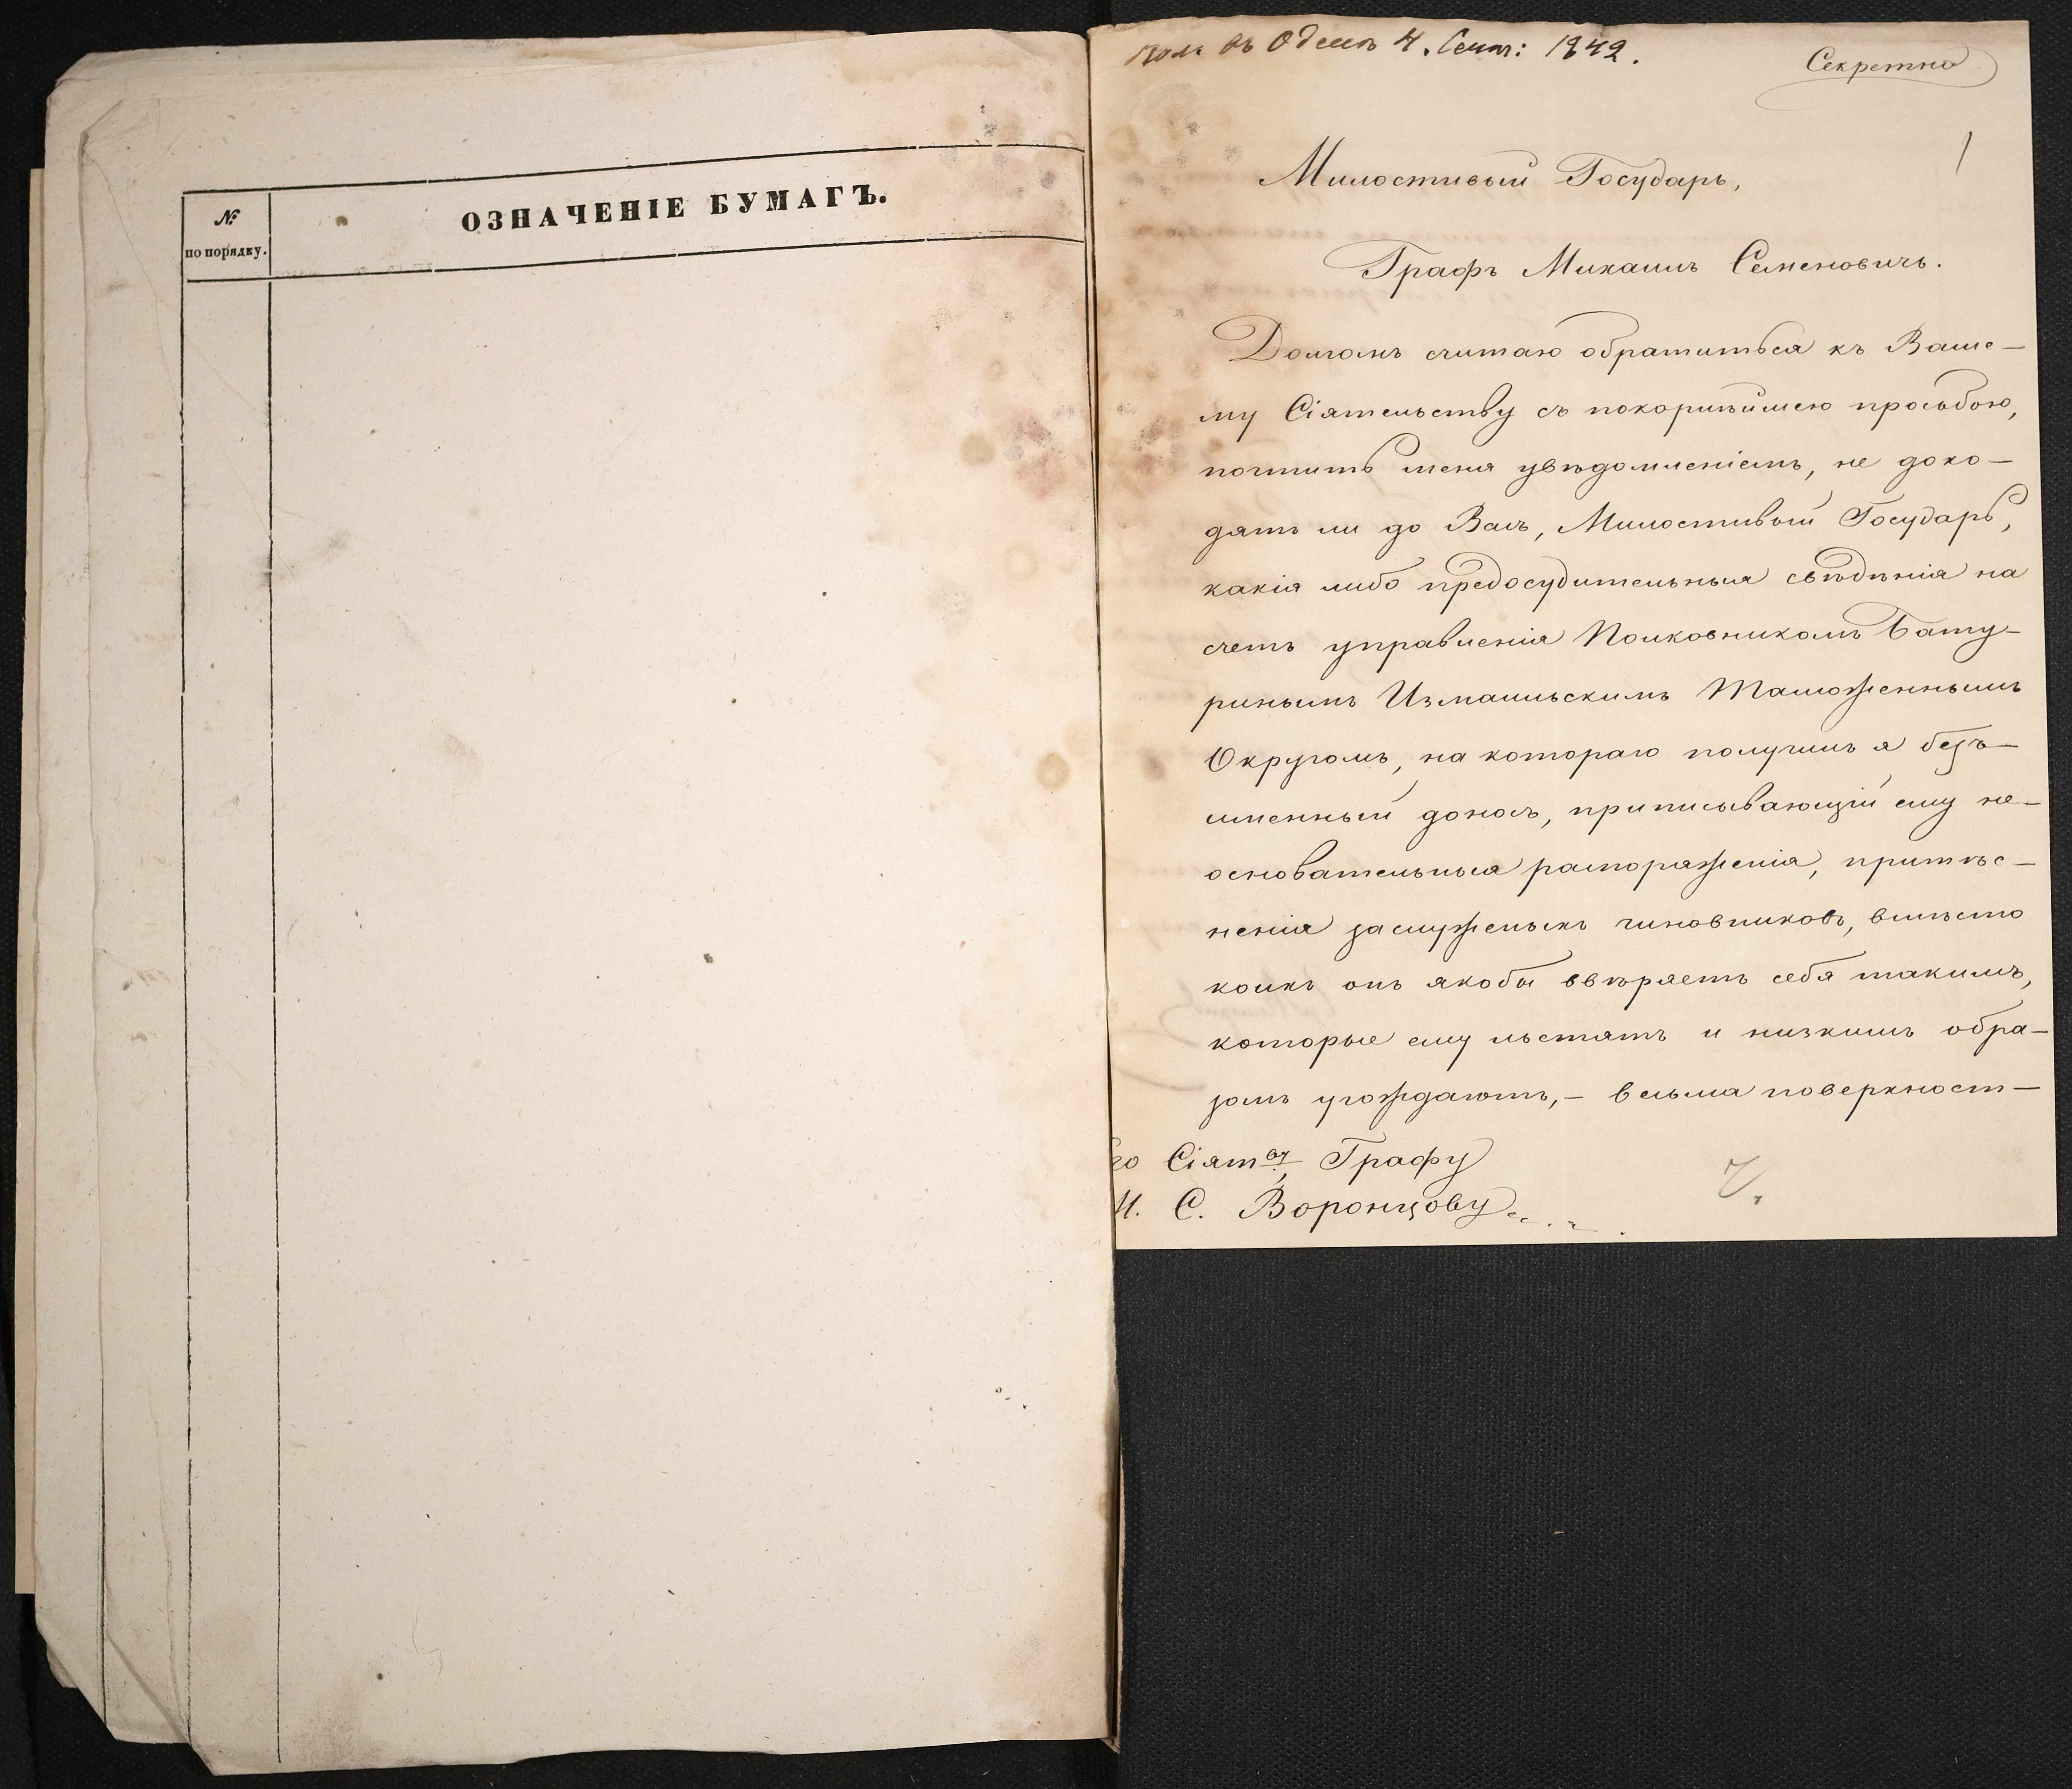 №
по порядку.
ОЗНАЧЕНІЕ БУМАГЪ.
Пол: въ Одессѣ 4. Сент: 1842.
Секретно
1
Милостивый Государь,
Графъ Михаилъ Семеновичъ.
Долгомъ считаю обратиться къ Ваше-
му Сіятельству съ покорнѣйшею просьбою,
почтить меня увѣдомленіемъ, не дохо-
дятъ ли до Васъ, Милостивый Государь,
какія либо предосудительныя свѣдѣнія на
счетъ управленія Полковникомъ Бату-
ринымъ Измаильскимъ Таможеннымъ
Округомъ, на котораго получилъ я безъ-
именный доносъ, приписывающій ему не-
основательныя распоряженія, притѣс-
ненія заслуженыхъ чиновниковъ, вмѣсто
коихъ онъ якобы ввѣряетъ себя такимъ,
которые ему льстятъ и низкимъ обра-
зомъ угождаютъ,- весьма поверхност-
го Сіят-ву Графу
М. С. Воронцову